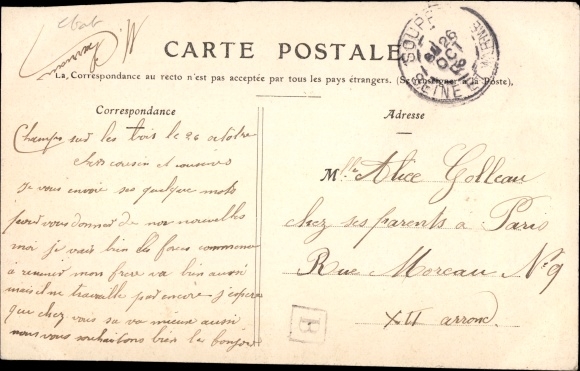 CARTE POSTALE
La Correspondance au recto n'est pas acceptée par tous les pays étrangers. (Se renseigner à la Poste),
Correspondance
Champs sur les bois le 26 octobre
chers cousin et cousines
Je vous envoie ses quelque mots
pour vous donner de nos nouvelles
moi je vais bien les forces commence
à revenir mon frere va bien aussi
mais il ne travaille pas encore j'espere
que chez vous sa va mieux aussi
nous vous souhaitons bien le bonjour
Adresse
Mlle Alice Golleau
chez ses parents à Paris
Rue Moreau N° 9
XII arrond.
B
26
OCT
SEINE
MARNE